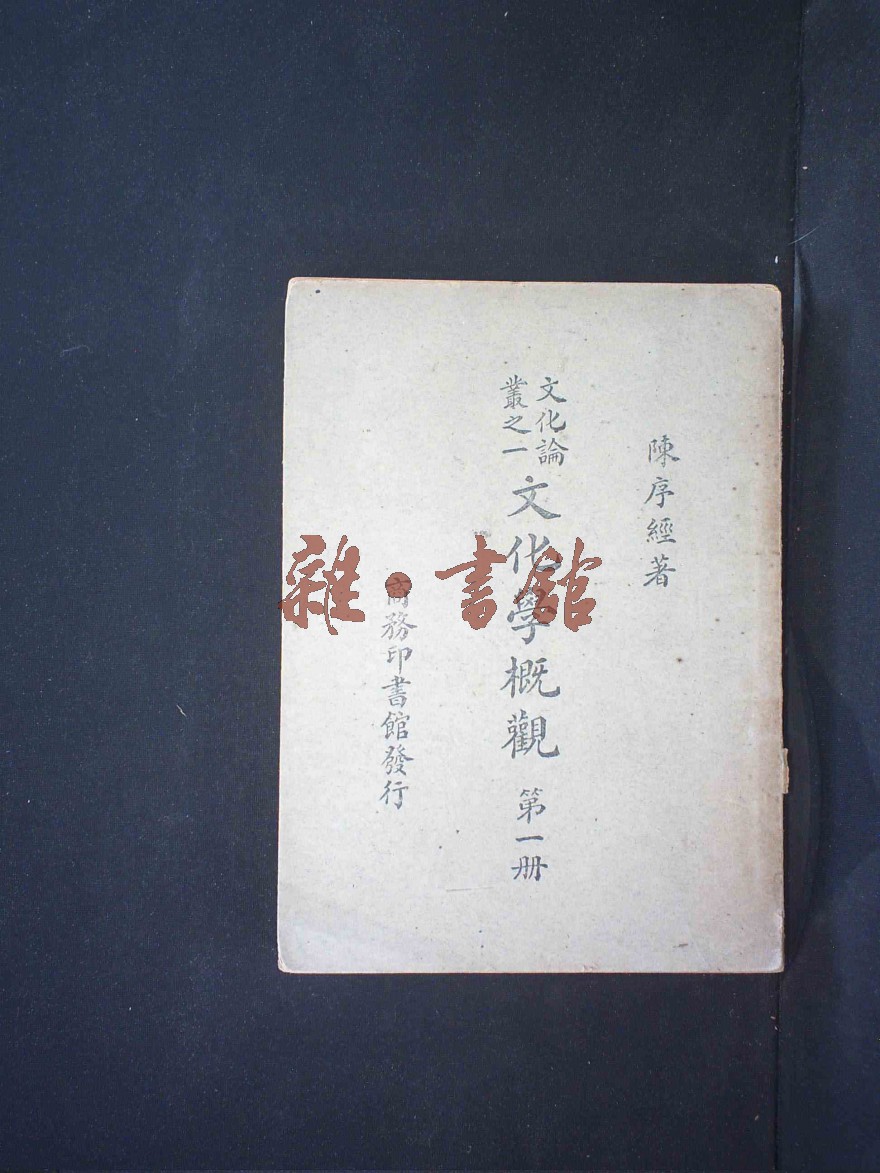 陳序經著
文化論
叢之一
文化學概觀 第一册
商務印書館發行
雜·書館